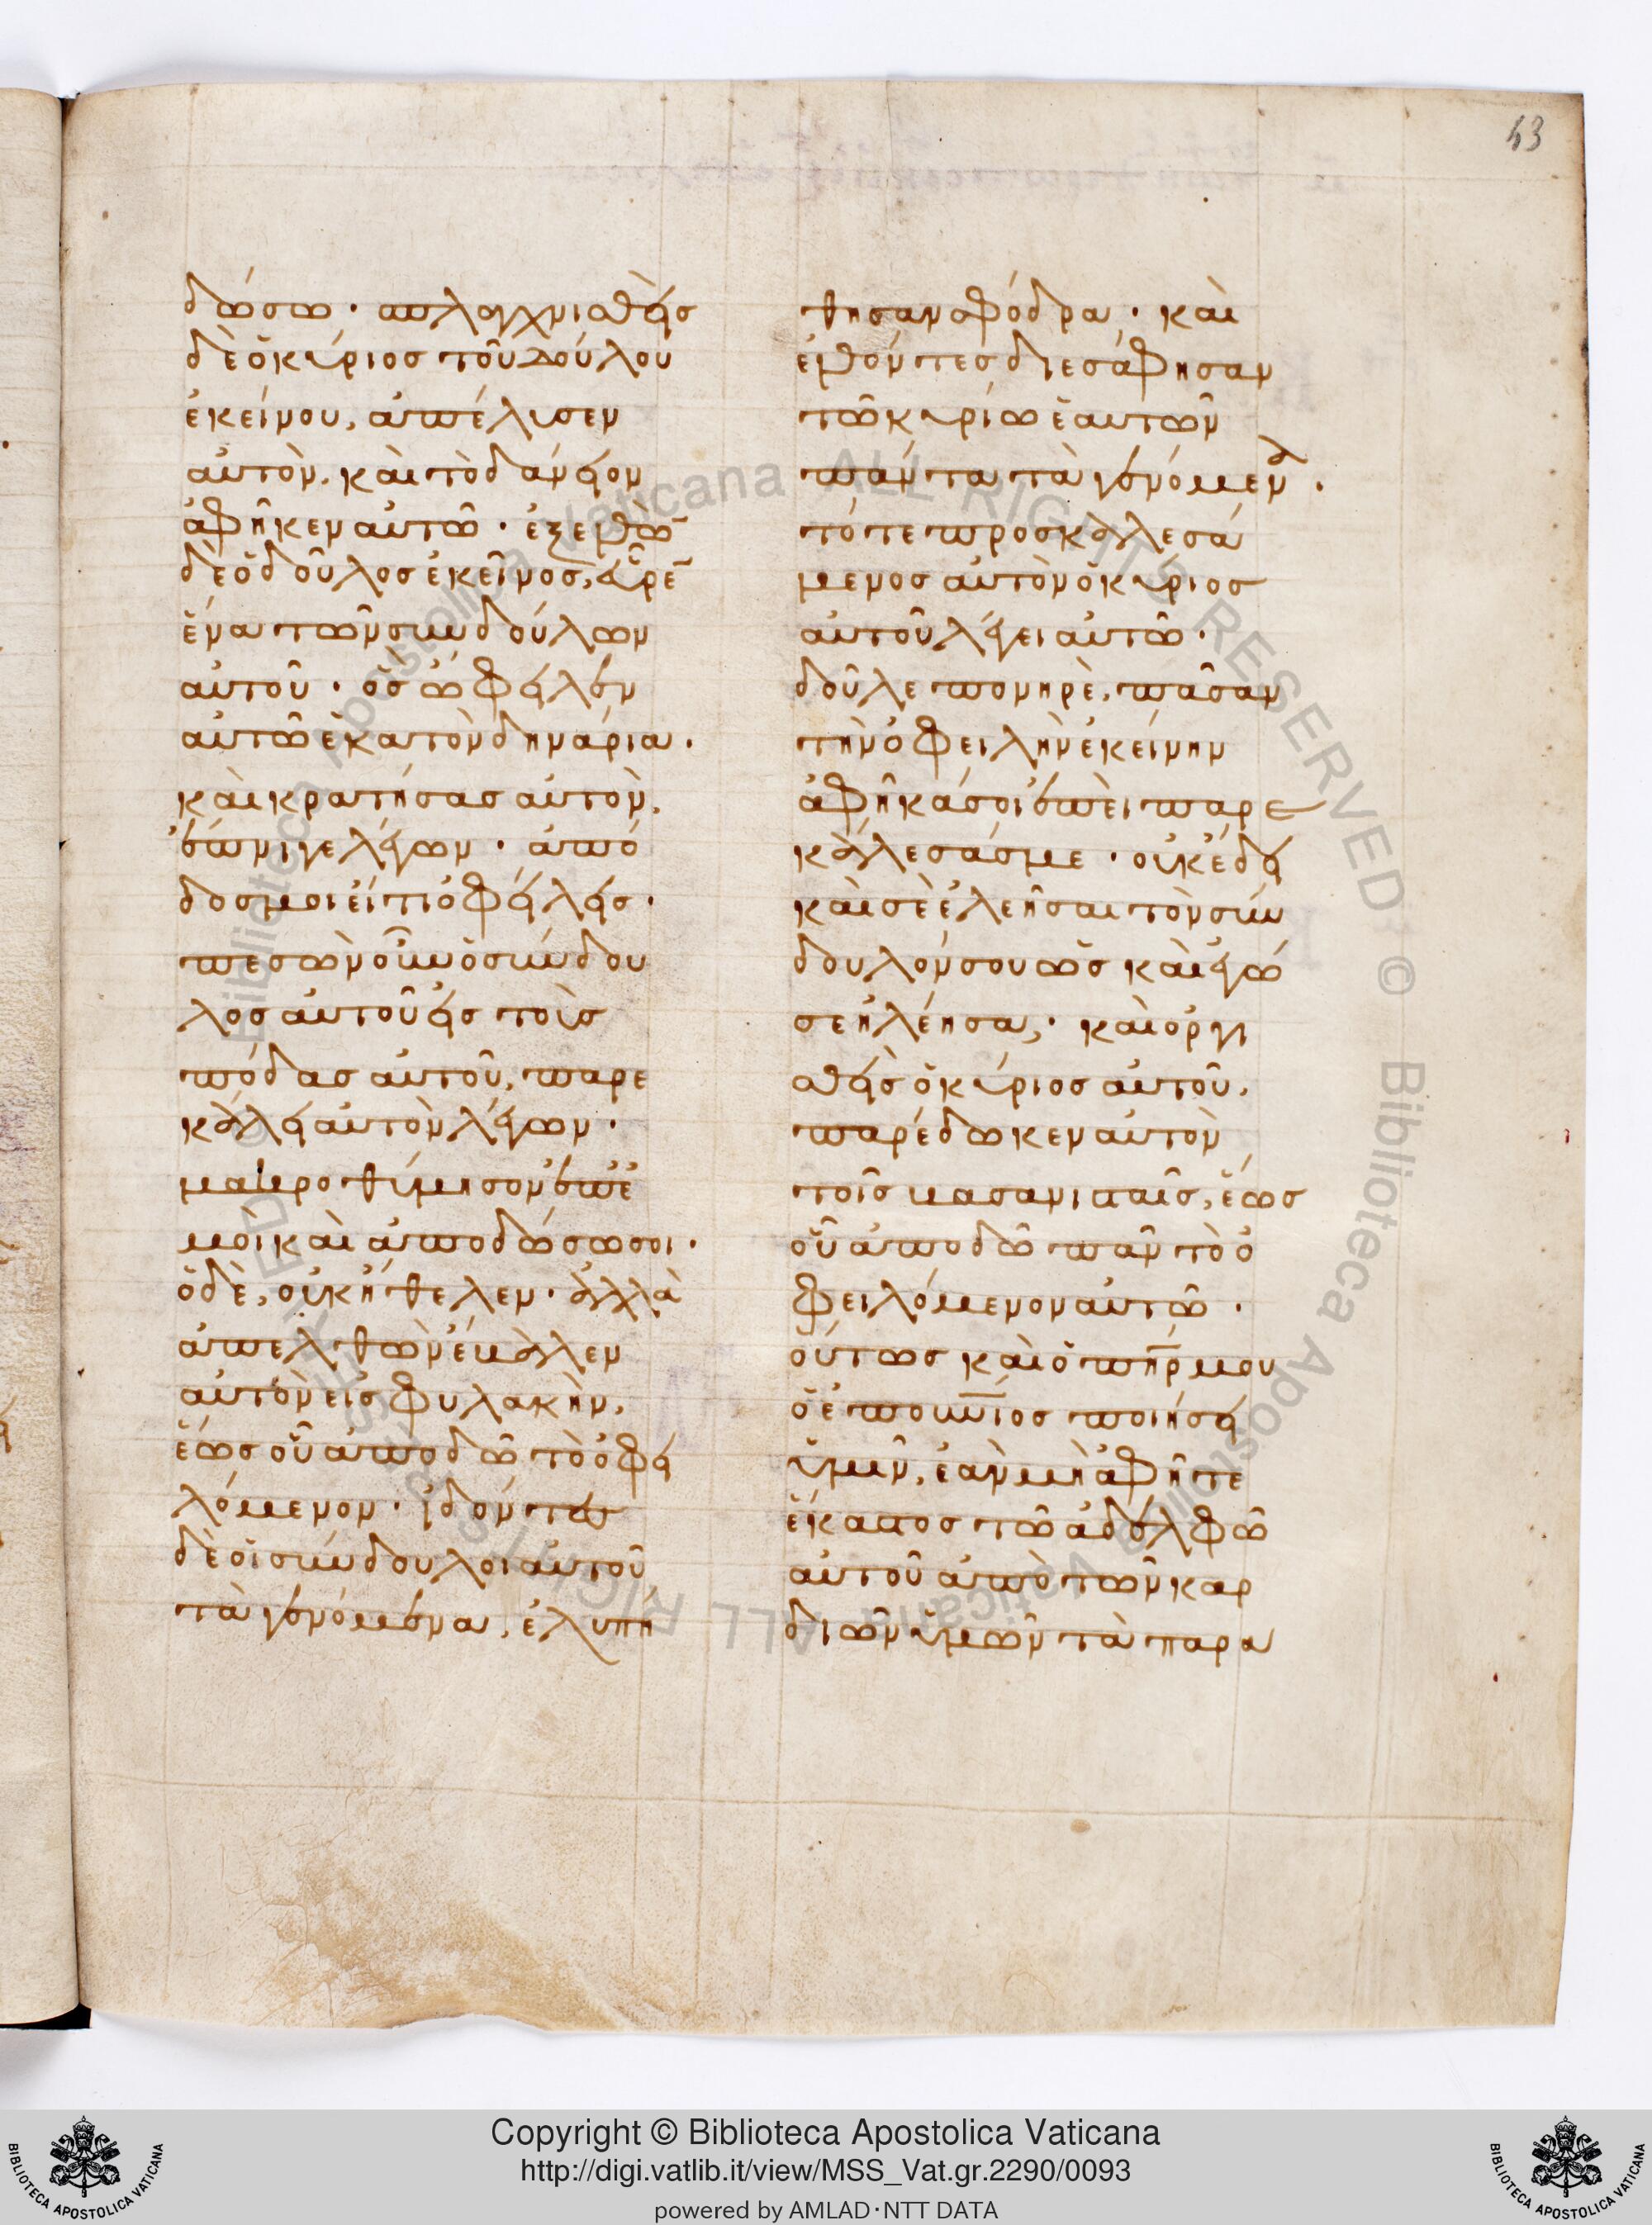 43
δώσω · σπλαγχνισθεὶς
δὲ ὁ κύριος τοῦ δούλου
ἐκείνου, ἀπέλυσεν
αὐτὸν, καὶ τὸ δάνειον
ἀφῆκεν αὐτῶ · ἐξελθὼ̄
δὲ ὁ δοῦλος ἐκεῖνος, εὗρε̄
ἕνα τῶν συνδούλων
αὐτοῦ · ὃς ὤφειλεν
αὐτῶ ἑκατὸν δηνάρια ·
καὶ κρατήσας αὐτὸν,
ἔπνιγε λέγων · ἀπό
δος μοι εἴ τι ὀφείλεις ·
πεσὼν οὖν ὁ σύνδου
λος αὐτοῦ εἰς τοὺς
πόδας αὐτοῦ, παρε
κάλει αὐτὸν λέγων ·
μακροθύμησον ἐπ' ἐ
μοὶ καὶ ἀποδώσω σοι ·
ὁ δὲ, οὐκ ἤθελεν · ἀλλὰ
ἀπελθὼν ἔβαλεν
αὐτὸν εἰς φυλακὴν,
ἕως οὗ ἀποδῶ τὸ ὀφει
λόμενον · ἰδόντες
δὲ οἱ σύνδουλοι αὐτοῦ
τὰ γενόμενα, ἐλυπή
θησαν σφόδρα · καὶ
ἐλθόντες διεσάφησαν
τῶ κυρίω ἑαυτῶν
πάντα τὰ γενόμεν ͣ ·
τότε προσκαλεσά
μενος αὐτὸν ὁ κύριος
αὐτοῦ λέγει αὐτῶ ·
δοῦλε πονηρὲ, πᾶσαν
τὴν ὀφειλὴν ἐκείνην
ἀφῆκά σοι ἐπεὶ παρε
κάλεσάς με · οὐκ ἔδει
καὶ σὲ ἐλεῆσαι τὸν σύν
δουλόν σου ὡς καὶ ἐγώ
σε ἠλέησα, · καὶ ὀργι
σθεὶς ὁ κύριος αὐτοῦ,
παρέδωκεν αὐτὸν
τοῖς βασανισταῖς, ἕως
οὗ ἀποδῶ πᾶν τὸ ὀ
φειλόμενον αὐτῶ ·
οὕτως καὶ ὁ π̅η̅ρ̅ μου
ὁ ἐπου̅ν̅ιος ποιήσει
ὑμῖν, ἐὰν μὴ ἀφῆτε
ἕκαστος τῶ ἀδελφῶ
αὐτοῦ ἀπὸ τῶν καρ
διῶν ὑμῶν τὰ παρα
Copyright © Biblioteca Apostolica Vaticana
http://digi.vatlib.it/view/MSS_Vat.gr.2290/0093
powered by AMLAD·NTT DATA